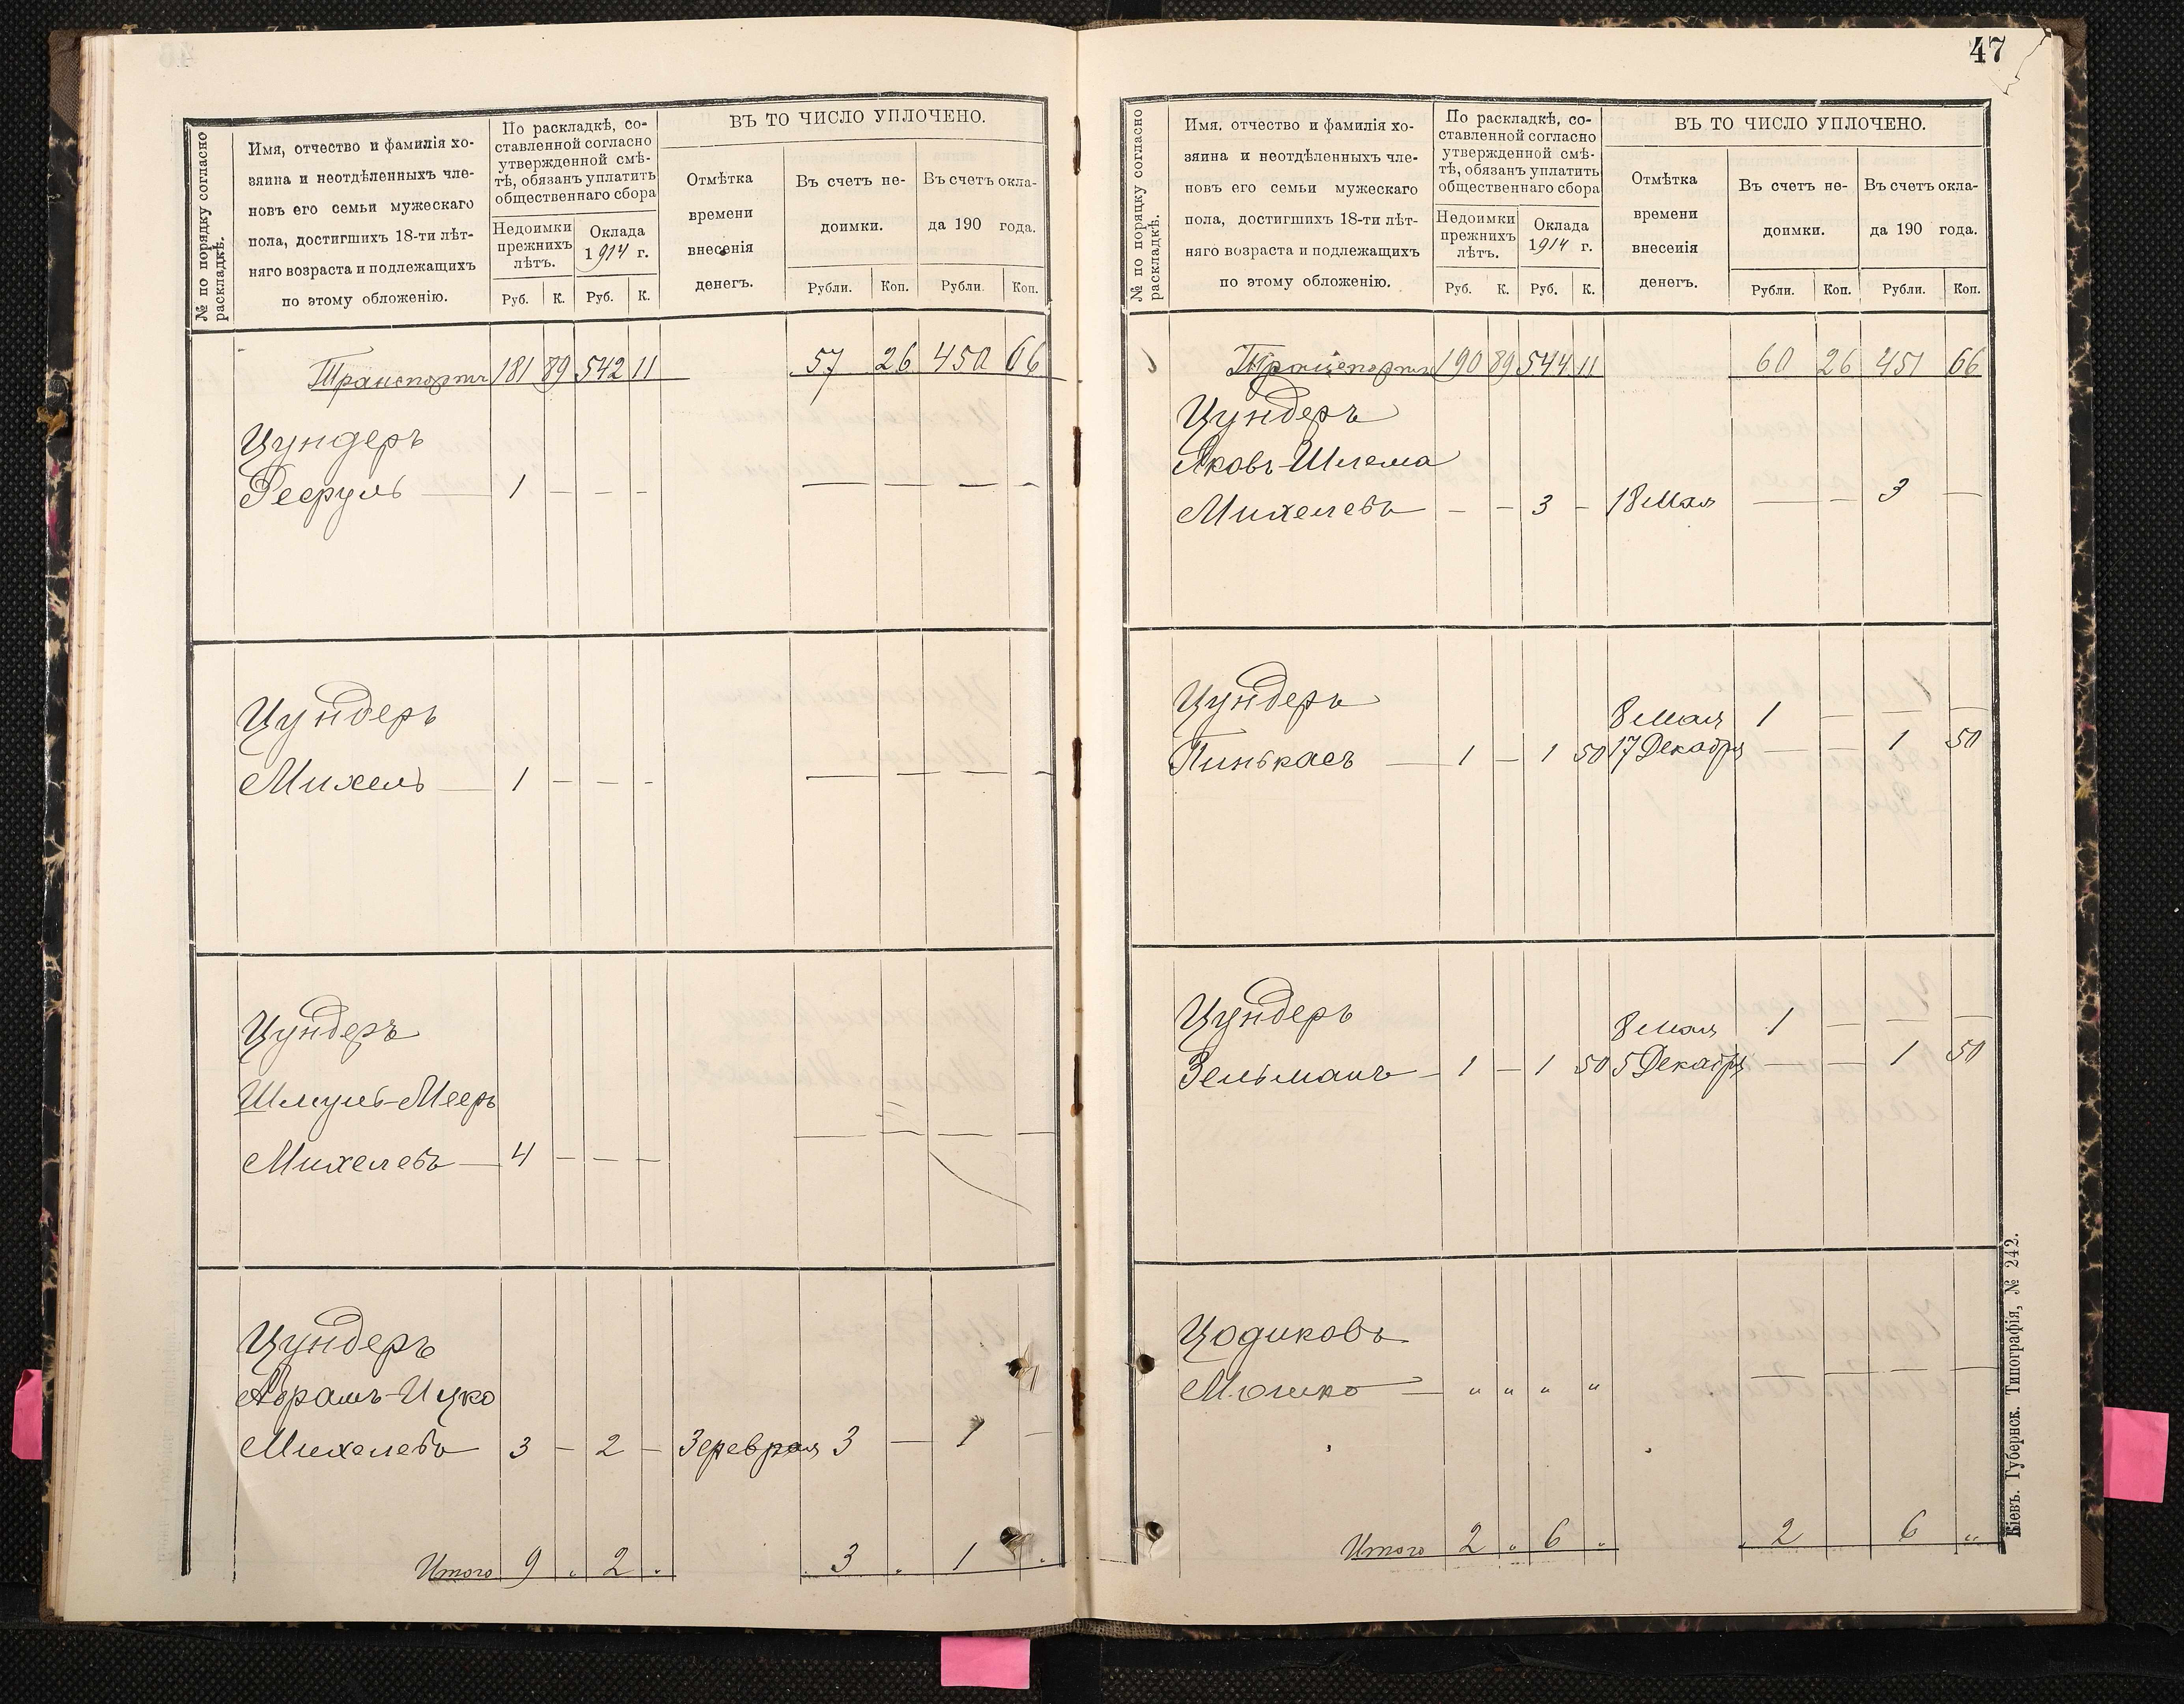 47
№ по порядку согласно раскладкѣ.
Имя, отчество и фамилія хо-
зяина и неотдѣленныхъ чле-
новъ его семьи мужескаго
пола, достигшихъ 18-ти лѣт-
няго возраста и подлежащихъ
по этому обложенію.
По раскладкѣ, со-
ставленной согласно
утвержденной смѣ-
тѣ, обязанъ уплатить
общественнаго сбора
Недоимки
прежнихъ
лѣтъ.
Оклада
1914 г.
Руб. К. Руб. К.
ВЪ ТО ЧИСЛО УПЛОЧЕНО.
Отмѣтка
времени
внесенія
денегъ.
Въ счетъ не-
доимки.
Въ счетъ окла-
да 190 года.
Рубли. Коп. Рубли. Коп.
Транспортъ 181 89 542 11 57 26 450 66
Цундеръ
Рефуль — 1 — — — — — — —
Цундеръ
Михель — 1 — — — — — — —
Цундеръ
Шмуль-Мееръ
Михелевъ — 4 — — — — — — —
Цундеръ
Абрамъ-Ицко
Михелевъ 3 — 2 — 3 февраля 3 — 1 —
Итого 9 „ 2 „ 3 „ 1 „
№ по порядку согласно раскладкѣ.
Имя, отчество и фамилія хо-
зяина и неотдѣленныхъ чле-
новъ его семьи мужескаго
пола, достигшихъ 18-ти лѣт-
няго возраста и подлежащихъ
по этому обложенію.
По раскладкѣ, со-
ставленной согласно
утвержденной смѣ-
тѣ, обязанъ уплатить
общественнаго сбора
Недоимки
прежнихъ
лѣтъ.
Оклада
1914 г.
Руб. К. Руб. К.
ВЪ ТО ЧИСЛО УПЛОЧЕНО.
Отмѣтка
времени
внесенія
денегъ.
Въ счетъ не-
доимки.
Въ счетъ окла-
да 190 года.
Рубли. Коп. Рубли. Коп.
Транспортъ 190 89 544 11 60 26 451 66
Цундеръ
Яковъ-Шлема
Михелевъ — — 3 — 18 Мая — — 3 —
Цундеръ
8 Мая 1 — — —
Пинькасъ — 1 — 1 50 17 Декабря — — 1 50
Цундеръ
8 Мая 1 — — —
Зельманъ — 1 — 1 50 5 Декабря — — 1 50
Цодиковъ
Мошко — „ „ „ „ — — — —
Итого 2 „ 6 „ 2 6 „
Кіевъ. Губернск. Типографія, № 242.